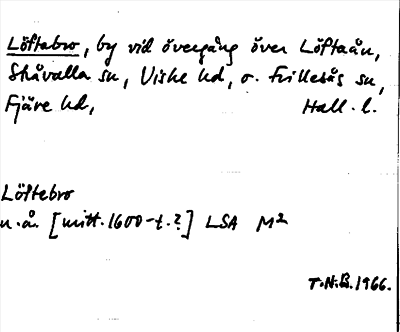 Löftebro, by vid övergång över Löftaån,
Stråvalla sn, Viske hd, o. Frillesås sn,
Fjäre hd, Hall. l.
Löftebro
u.å. [mitt. 1600-t.?] LSA M2
T.N.B. 1966.